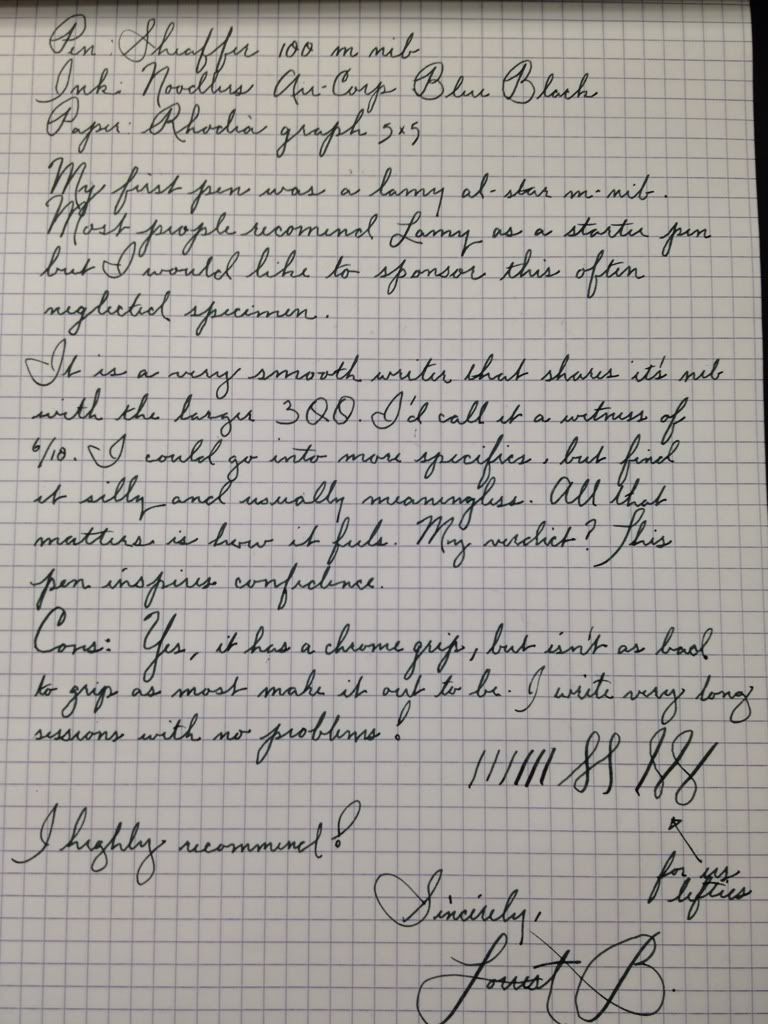 Pen: Sheaffer 100 m nib
Ink: Noodlers Air-Corp Blue Black
Paper: Rhodia graph 5x5
My first pen was a lamy al-star m-nib.
Most people recomend Lamy as a starter pen
but I would like to sponsor this often
neglected specimen.
It is a very smooth writer that shares it's nib
with the larger 300. I'd call it a wetness of
6/10. I could go into more specifics, but find
it silly and usually meaningless. All that
matters is how it feels. My verdict? This
pen inspires confidence.
Cons: Yes, it has a chrome grip, but isn't as bad
to grip as most make it out to be. I write very long
sessions with no problems!
I highly recommend!
for us
lefties
Sincerely,
Forrest B.